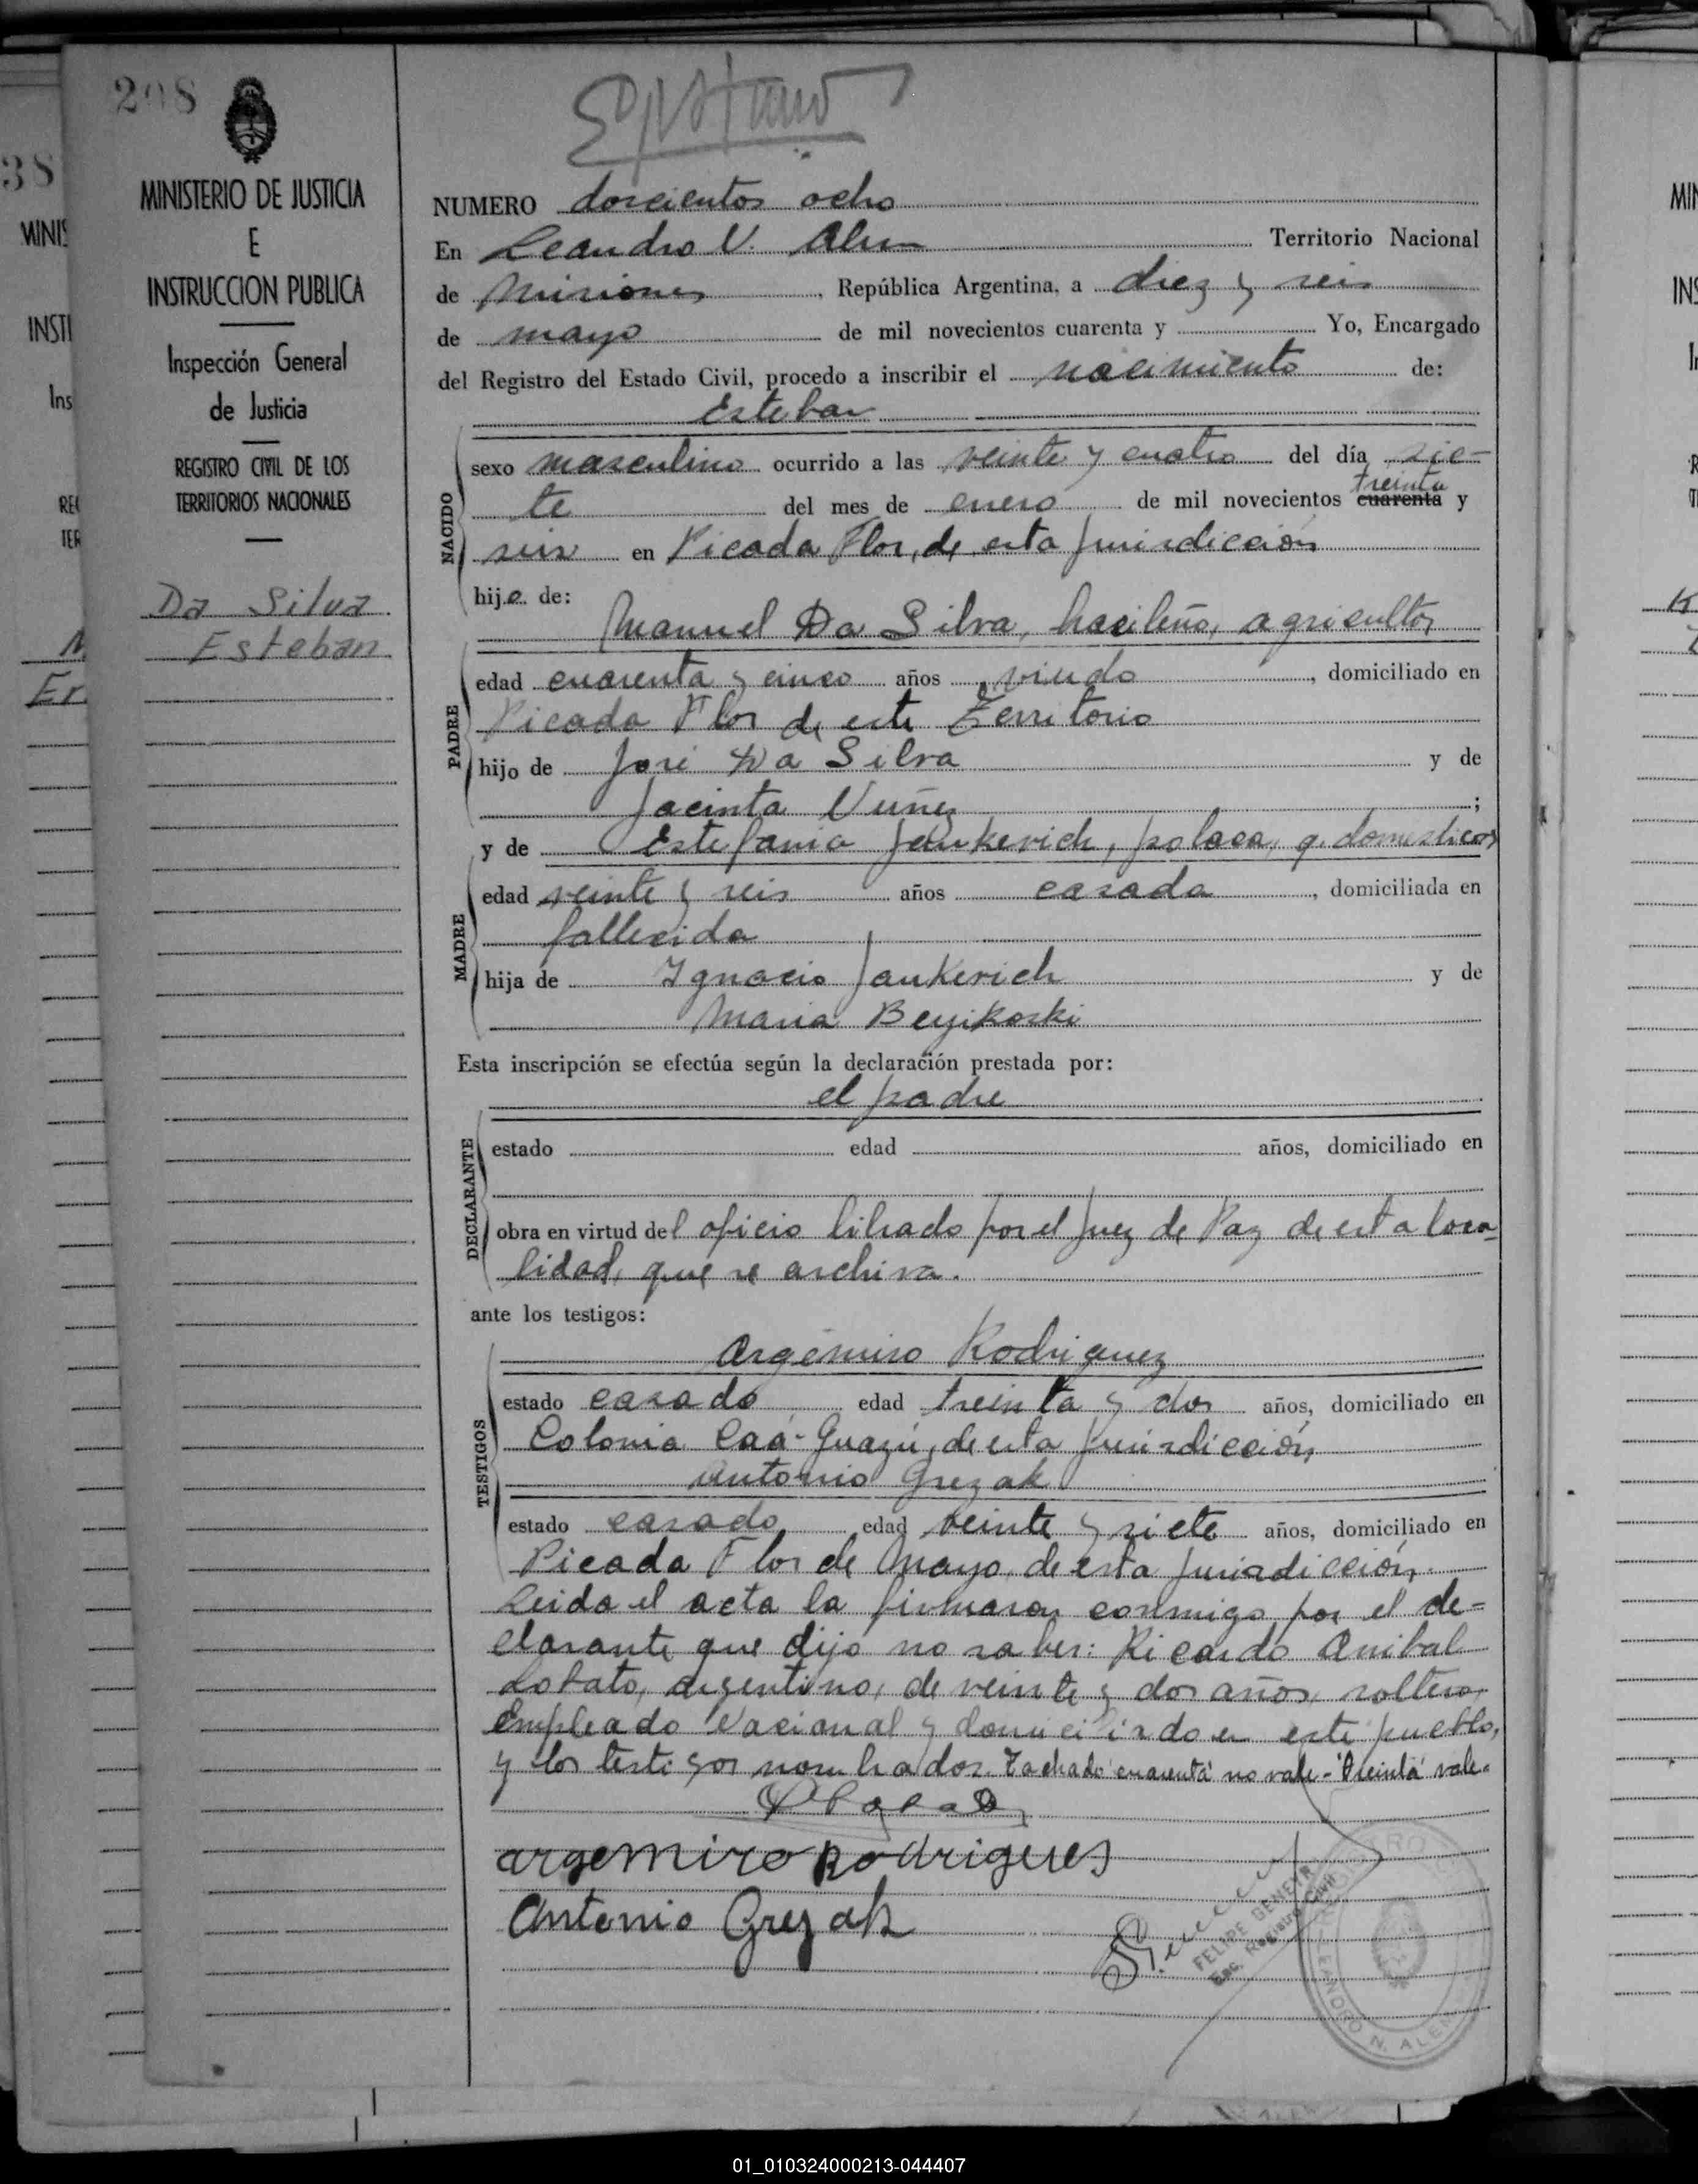 208
MINISTERIO DE JUSTICIA
E
INSTRUCCION PUBLICA
Inspección General
de Justicia
REGISTRO CIVIL DE LOS
TERRITORIOS NACIONALES
Da Silva
Esteban
NUMERO doscientos ocho
En Leandro N. Alem Territorio Nacional
de Misiones, República Argentina, a diez y seis
de mayo de mil novecientos cuarenta y Yo, Encargado
del Registro del Estado Civil, procedo a inscribir el nacimiento de:
Esteban
NACIDO
sexo masculino ocurrido a las veinte y cuatro del día sie-
te del mes de enero de mil novecientos cuarenta treinta y
seis en Picada Flor, de esta jurisdicción
hijo de:
Manuel Da Silva, brasileño, agricultor,
PADRE
edad cuarenta y cinco años viudo, domiciliado en
Picada Flor de este Territorio
hijo de José Da Silva y de
Jacinta Nuñez;
y de Estefania Jankevich, polaca, q. domesticos
MADRE
edad veinte y seis años casada, domiciliada en
fallecida
hija de Ignacio Jankevich y de
Maria Beyikoski
Esta inscripción se efectúa según la declaración prestada por:
el padre
DECLARANTE
estado edad años, domiciliado en
obra en virtud del oficio librado por el Juez de Paz de esta loca-
lidad, que se archiva.
ante los testigos:
Argemiro Rodriguez
TESTIGOS
estado casado edad treinta y dos años, domiciliado en
Colonia Caá-Guazú, de esta jurisdicción,
Antonio Grezak
estado casado edad veinte y siete años, domiciliado en
Picada Flor de Mayo, de esta jurisdicción.
Leida el acta la firmaron conmigo por el de-
clarante que dijo no saber: Ricardo Anibal
Lobato, argentino, de veinte y dos años, soltero,
Empleado Nacional y domiciliado en este pueblo,
y los testigos nombrados. Tachado "cuarenta" no vale - "treinta" vale.
argemiro Rodrigues
Antonio Grezak
FELIPE GENEYR
Enc. Registro Civil
LEANDRO N. ALEM
01_010324000213-044407